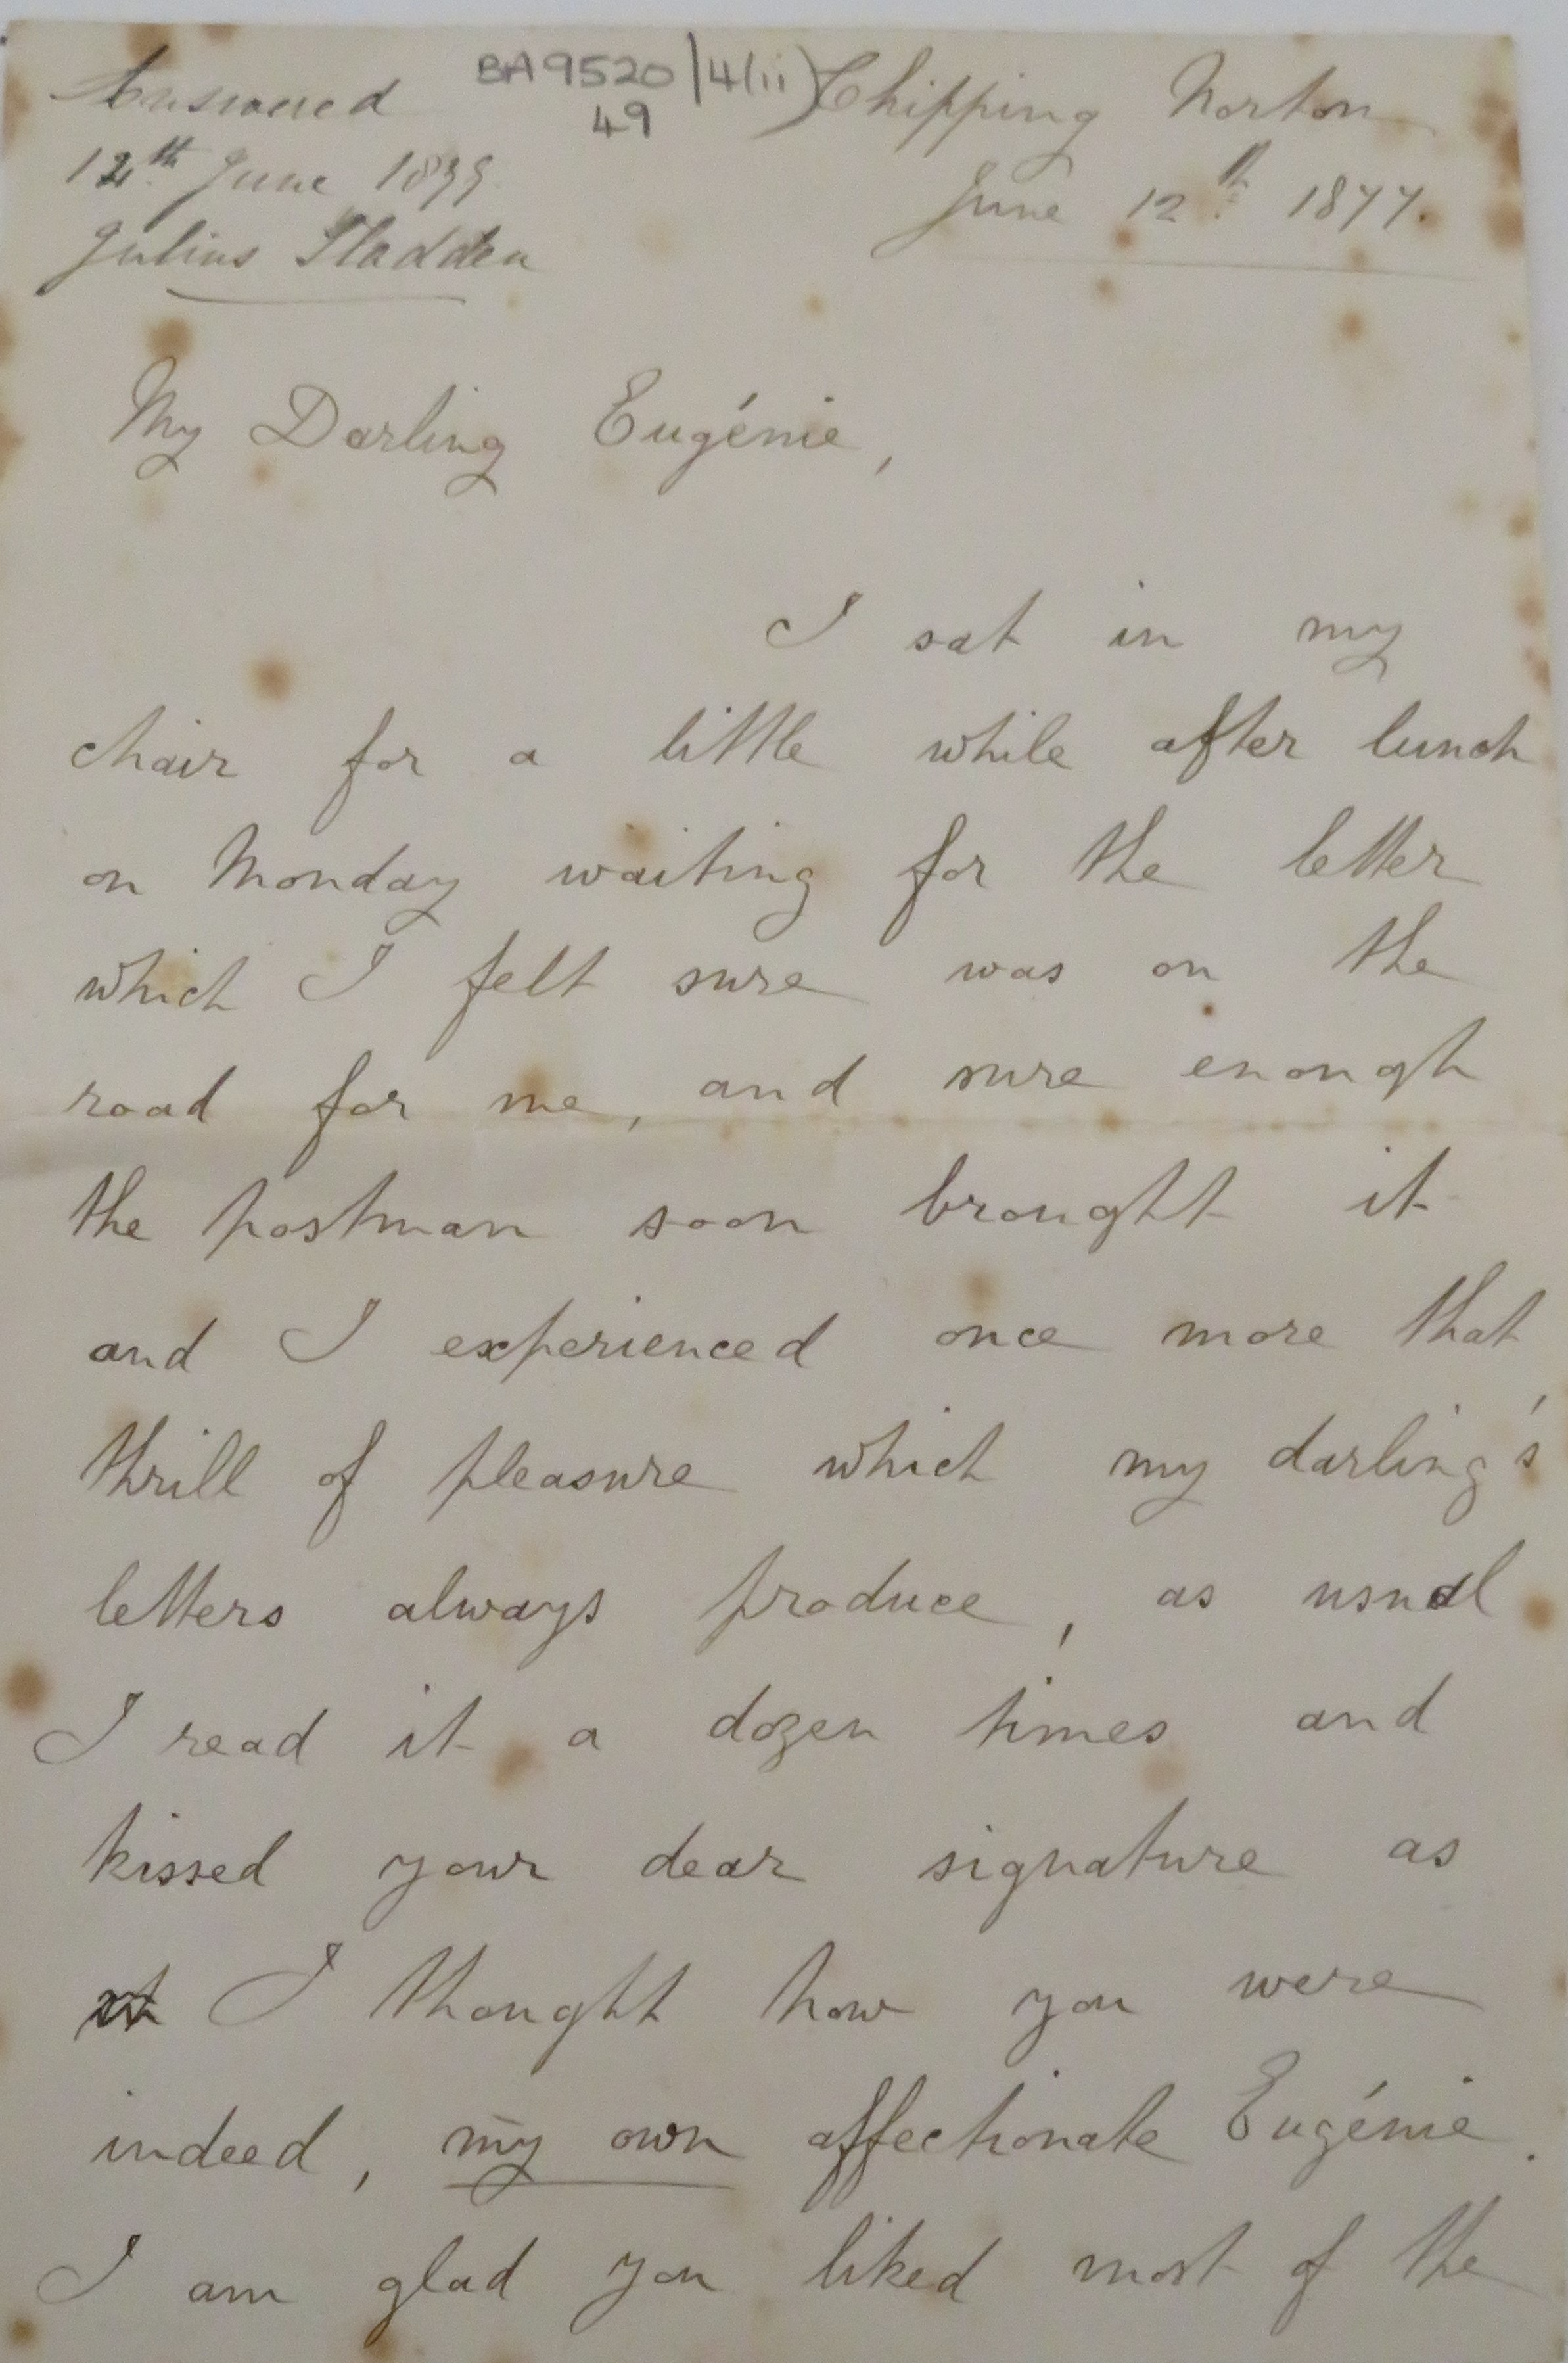 Answered
12th June 1877
Julius Sladden
BA9520/4(ii)
49
Chipping Norton
June 12th 1877.
My Darling Eugénie,
I sat in my
chair for a little while after lunch
on Monday waiting for the letter
which I felt sure was on the
road for me, and sure enough
the postman soon brought it
and I experienced once more that
thrill of pleasure which my darling's
letters always produce, as usual
I read it a dozen times and
kissed your dear signature as
I thought how you were
indeed, my own affectionate Eugénie.
I am glad you liked most of the